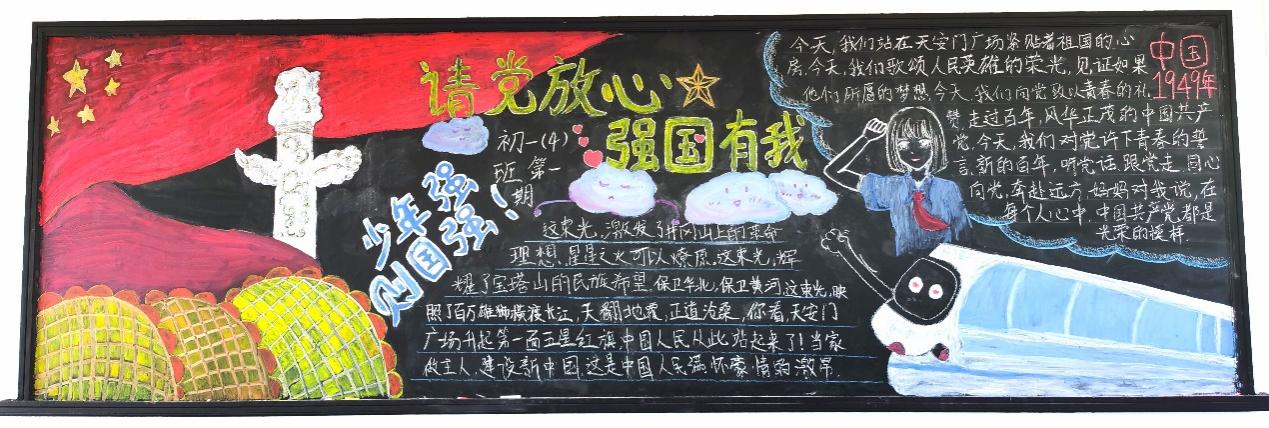 请党放心
强国有我
初一(4)
班第一
期
少年强
则国强!
这束光,激发了井冈山上的革命
理想,星星之火可以燎原,这束光,辉
耀了宝塔山的民族希望,保卫华北,保卫黄河,这束光,映
照了百万雄师横渡长江,天翻地覆,正道沧桑,你看,天安门
广场升起第一面五星红旗中国人民从此站起来了!当家
做主人,建设新中国,这是中国人民满怀豪情的激昂.
今天,我们站在天安门广场紧贴着祖国的心
房.今天,我们歌颂人民英雄的荣光,见证如果
他们所愿的梦想.今天,我们向党致以青春的礼
赞,走过百年,风华正茂的中国共产
党.今天,我们对党许下青春的誓
言,新的百年,听党话,跟党走,同心
向党,奔赴远方,妈妈对我说,在
每个人心中,中国共产党都是
光荣的模样.
中国
1949年